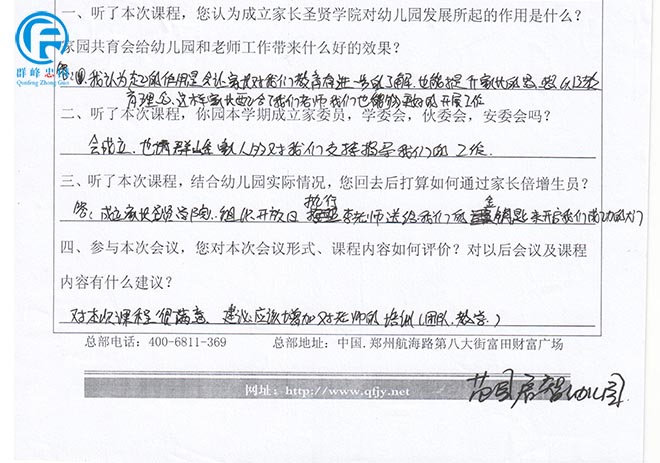 群峰忠合
Qunfeng Zhong Guo
一、听了本次课程，您认为成立家长圣贤学院对幼儿园发展所起的作用是什么？
家园共育会给幼儿园和老师工作带来什么好的效果？
答：我认为起的作用是会让家长对我们教育有进一步的了解，也能提升家长的
育理念，这样家长配合了我们老师我们也能够更好的开展工作
二、听了本次课程，你园本学期成立家委员，学委会，伙委会，安委会吗？
会成立，也请群峰人的对我们支持指导我们的工作.
三、听了本次课程，结合幼儿园实际情况，您回去后打算如何通过家长倍增生员？
执行 金
答：成立家长圣贤学院，组织开放日 李老师送给我们的 钥匙来开启我们成功的大门
四、参与本次会议，您对本次会议形式、课程内容如何评价？对以后会议及课程
内容有什么建议？
对本次课程很满意、建议应该增加对老师的培训（团队、教学）
总部电话：400-6811-369 总部地址：中国.郑州航海路第八大街富田财富广场
网址：http://www.qfjy.net
苗圃启智幼儿园